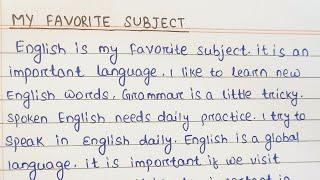 MY FAVORITE SUBJECT
English is my favorite subject. it is an
important language. I like to learn new
English words. Grammar is a little tricky.
Spoken English needs daily practice. I try to
speak in English daily. English is a global
language. it is important if we visit